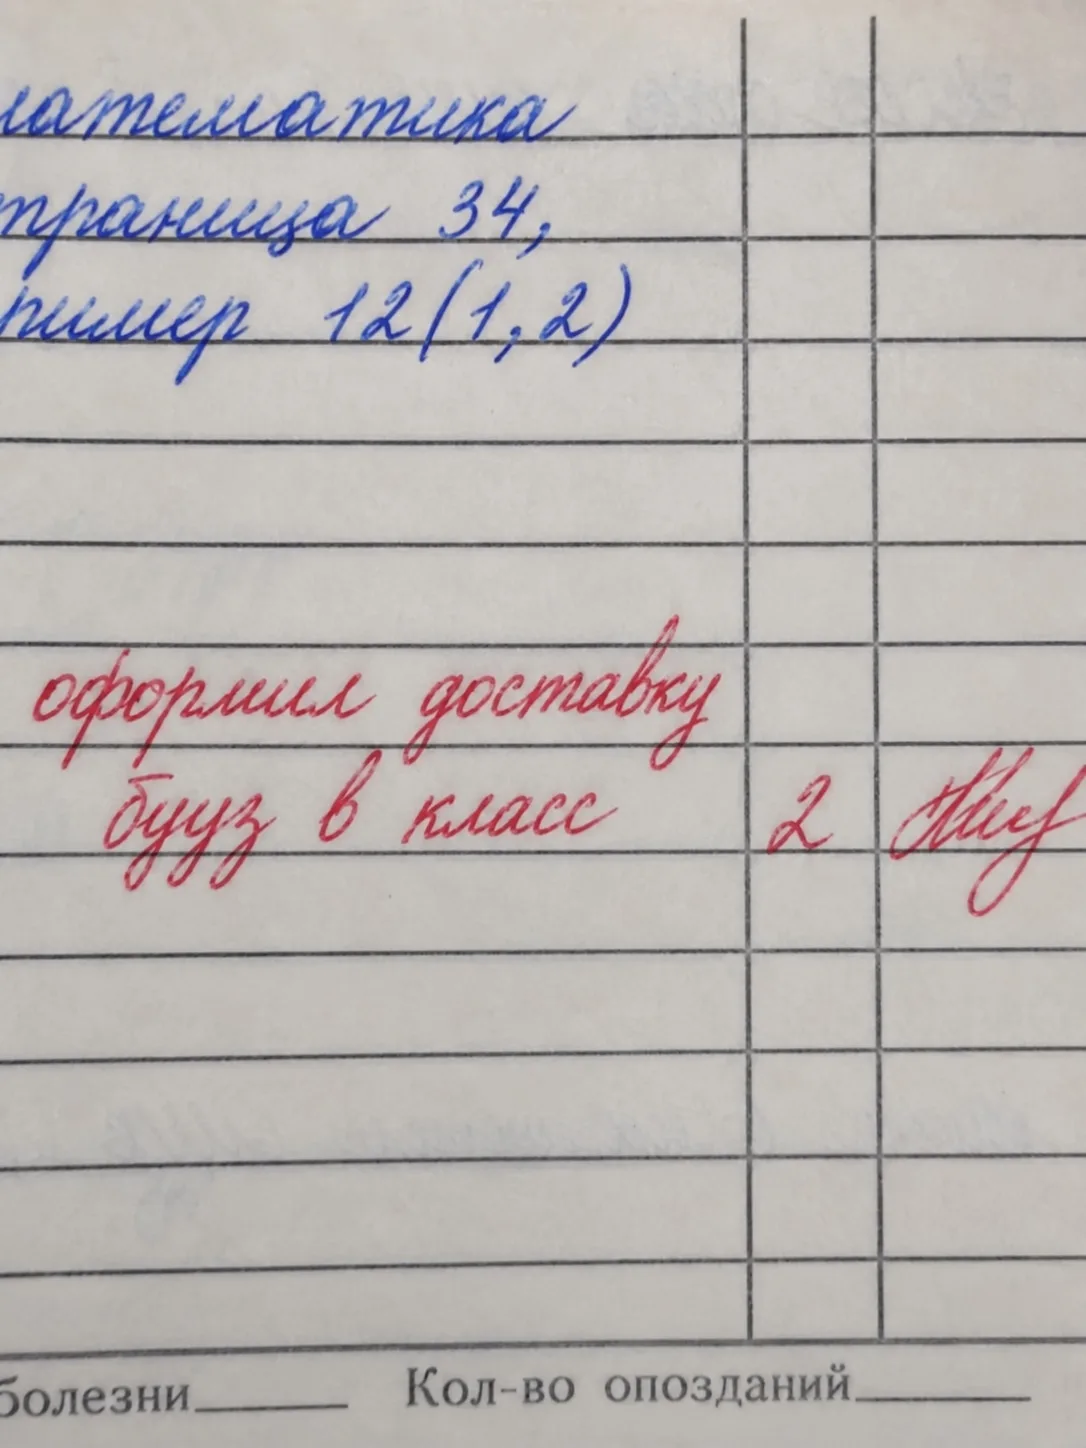 математика
траница 34,
ример 12(1,2)
оформил доставку
бууз в класс 2
болезни Кол-во опозданий